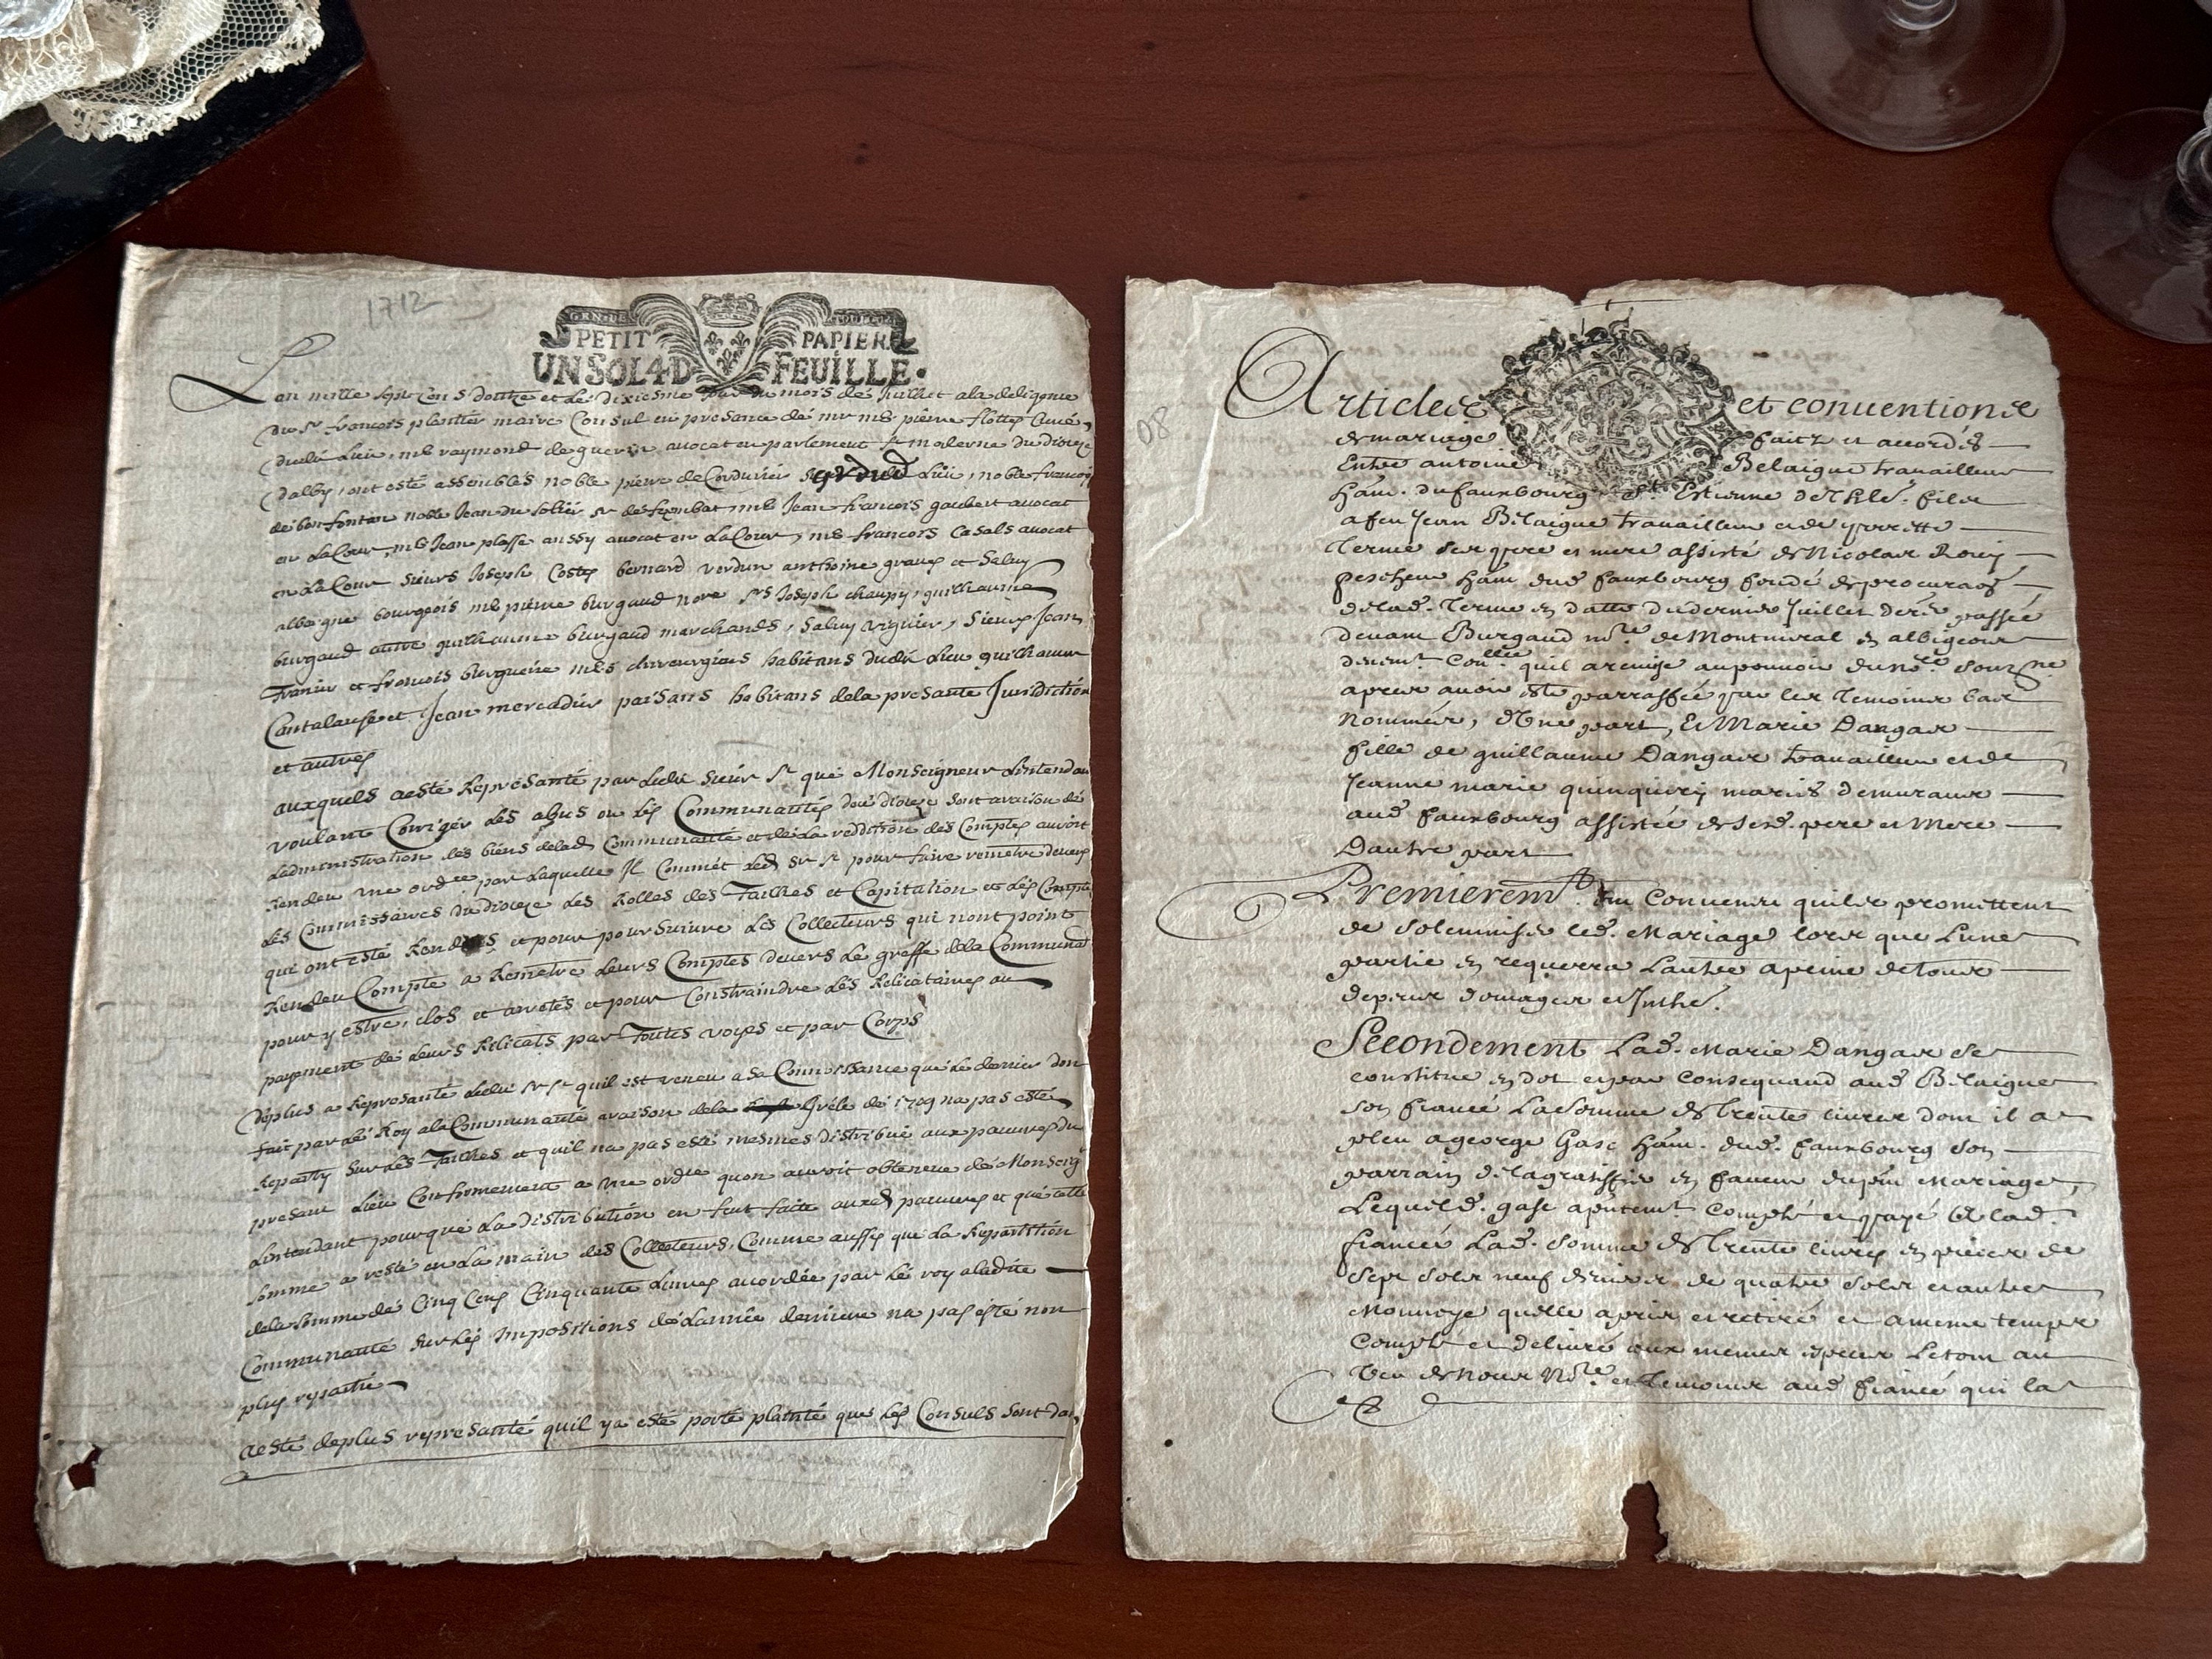 1712
GEN DE TOULOUSE
PETIT PAPIER
UN SOL 4 D FEUILLE.
Lan mille sept cens doutze et le dixiesme jour du mois de juillet ala deligence
du Sr francois plantier maire Consul en presance de mr me pierre flottes Curé
dudit Lieu, me raymond de guerin avocat en parlement st moderne du dioceze
dalby, ont esté assemblés noble pierre de Cordurier dudit Lieu, noble francois
de bonfontan noble Jean du solier Sr de me Jean francois gaubert avocat
en La Cour, me Jean plasse aussy avocat en La Cour, me francois Casals avocat
en La Cour Sieurs Joseph Costes bernard verdun anthoine et Saluy
bourgeois me pierre burgaud nore Srs Joseph chaupy, guilhaume
burgaud autre guilhaume burgaud marchands, Saluy viguier, Sieurs Jean
et francois burguiere mes chirurgiens habitans dudit Lieu guilhaume
Cantalause et Jean mercadier paisans habitans de la presante Juridiction
et autres
auxquels a esté Represanté par Ledit Sieur St que Monseigneur Lintendan
voulant Corriger Les abus ou Les Communautés du dioceze sont a raison de
Ladministration des biens delad Communauté et de La reddition des Comptes auroit
Rendeu une ordce par Laquelle Il Commet Led Sr St pour faire remetre devers
Les Commissaires du dioceze Les Rolles des Tailles et Capitation et Les Compte
qui ont esté Rendus et pour poursuivre Les Collecteurs qui nont point
Rendeu Compte a Remetre Leurs Comptes devers Le greffe dela Communau
pour y estre, clos et arretés et pour Constraindre Les Relicataires au
payement de Leurs Relicats par Toutes voyes et par Corps
deplus a Represanté Ledit Sr St quil est veneu a sa Connoissance que Le dernier don
fait par Le Roy ala Communauté a raison de la Grele de 1709 na pas esté
Reparty sur Les Tailles et quil na pas esté mesmes distribué aux pauvres du
presant Lieu Conformement a une ordce quon auroit obteneue de Monseig
Lintendant pour que La distribution en feut faite auxd pauvres et que cette
somme a resté en La main des Collecteurs, Comme aussy que La Repartition
dela somme de Cinq Cens Cinquante Livres accordée par Le roy a ladite
Communauté sur Les Impositions de Lannée derniere na pas esté non
plus
a esté deplus represanté quil y a esté porté plainte que Les Consuls sont dan
08
Articles et conventions
de mariage faitz et accordés
Entre antoine Belaigue travailleur
ham. du fauxbourg St. Estienne de Thle. filz
a feu Jean Belaigue travailleur et de
Terme ses pere et mere assisté de Nicolas Rouy
pescheur ham dud fauxbourg fondé de procuraon
de lad. Terme en datte du dernier Juillet passée
devant Burgaud nore de Montmiral en albigeois
deuemt Conllée quil a remise au pouvoir du nore souzne
apres avoir esté parraffée par les temoins bas
nommés, d'Une part, Et Marie Dangas
fille de guillaume Dangas travailleur et de
Jeanne marie mariés demurans
aud fauxbourg assistée de sesd. pere et Mere
Dautre part
Premieremt. Convenu quils promettent
de solemniser led. Mariage lors que Lune
partie en requerra Lautre a peine de tous
depens domages et Inthé.
Secondement Lad. Marie Dangas se
constitue en dot et par consequand aud Belaigue
son fiancé La somme de trente livres dont il a
pleu a george Gasc ham. dud. fauxbourg son
parrain de la gratiffier en faveur du pnt Mariage,
Lequel d. gasc a pntemt. compté et payé a lad.
fiancée Lad. somme de trente livres en pieces de
sept solz neuf deniers de quatre solz et autre
Monnoye quelle a prise et retiré et a meme temps
compté et delivré aux memes especes Le tout au
veu de Nous Nore et Temoins aud fiancé qui la